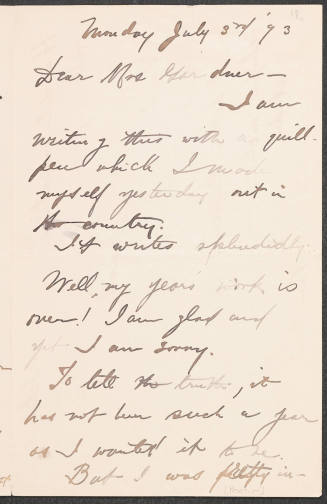 Monday July 3rd '93
Dear Mrs Gardner—
I am
writing this with a quill-
pen which I made
myself yesterday out in
the country.
It writes splendidly.
Well, my years work is
over! I am glad and
yet I am sorry.
To tell the truth, it
has not been such a year
as I wanted it to be.
But I was in-